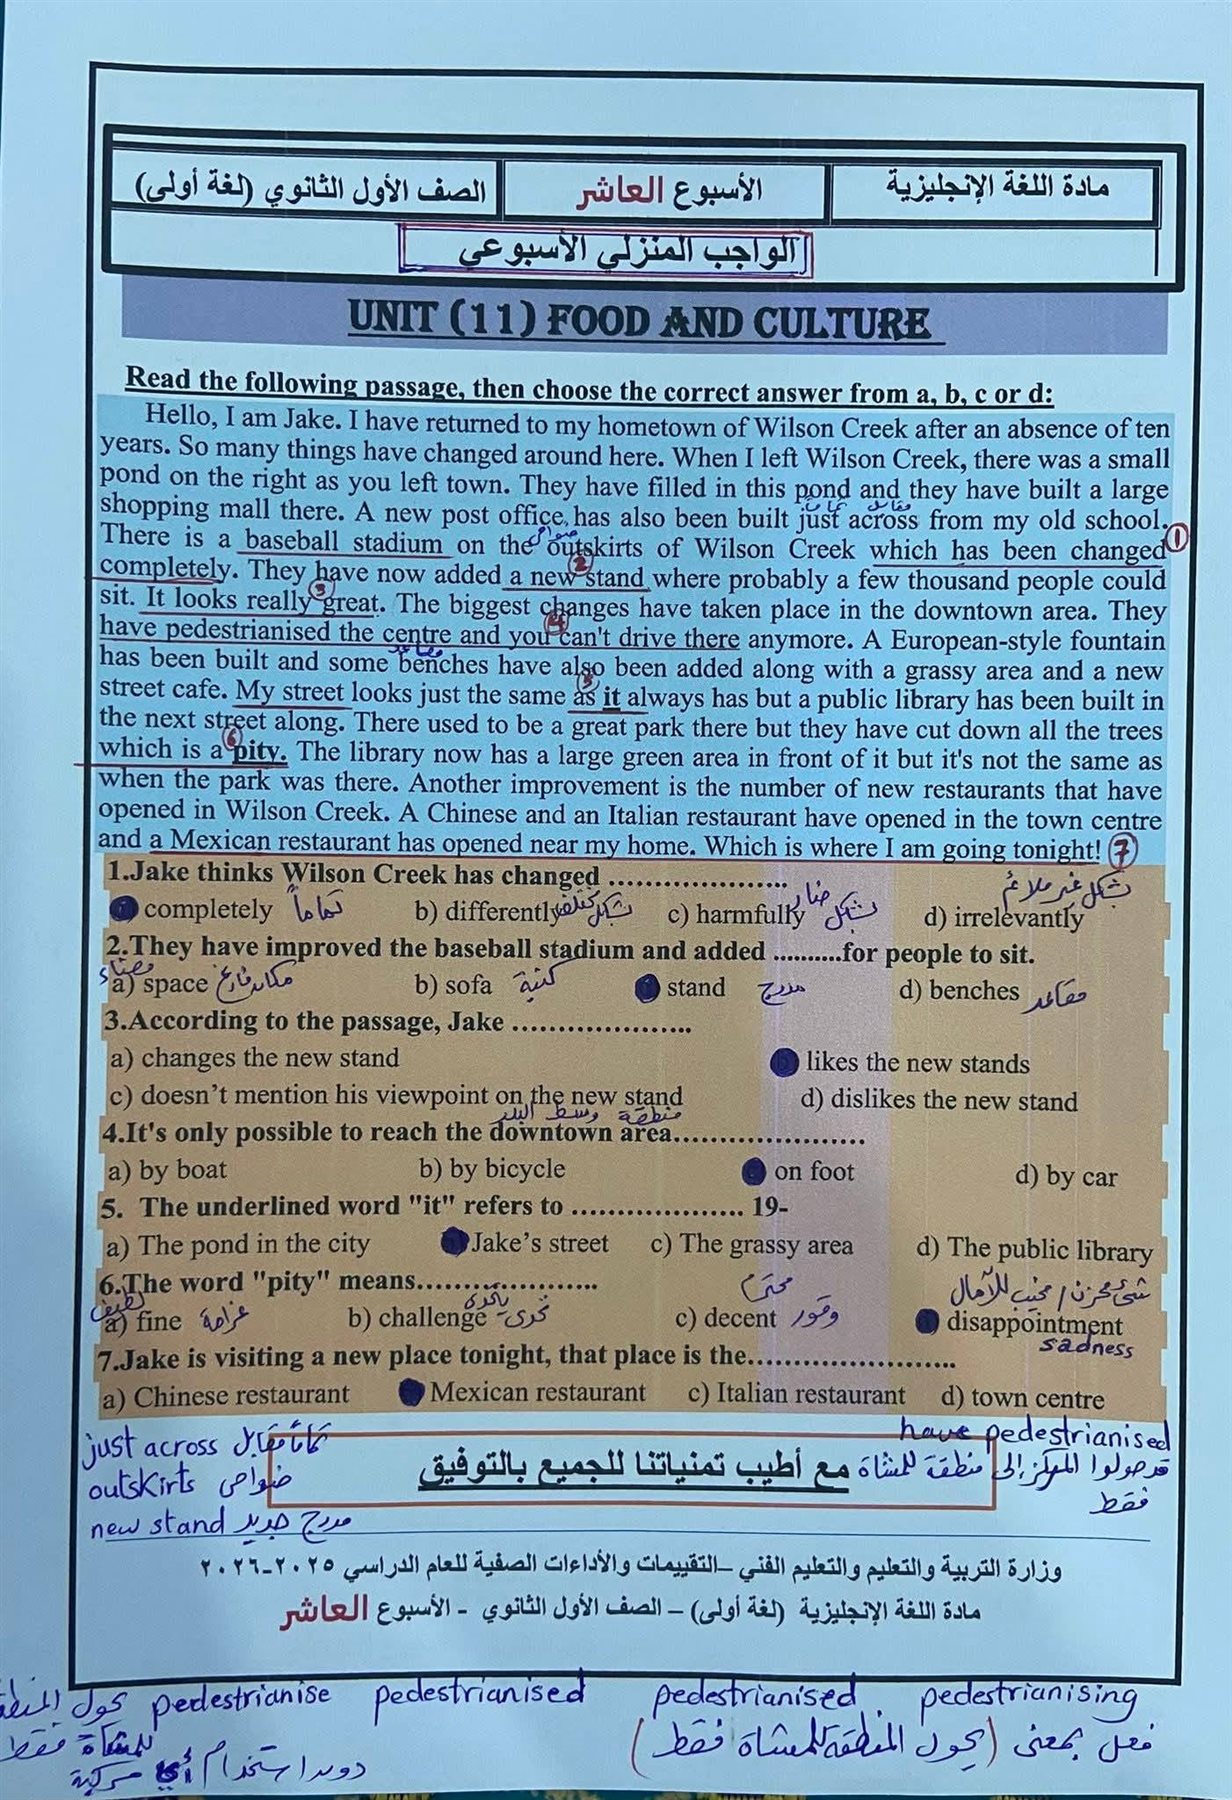 مادة اللغة الإنجليزية
الأسبوع العاشر
الصف الأول الثانوي (لغة أولى)
الواجب المنزلي الأسبوعي
UNIT (11) FOOD AND CULTURE
Read the following passage, then choose the correct answer from a, b, c or d:
Hello, I am Jake. I have returned to my hometown of Wilson Creek after an absence of ten
years. So many things have changed around here. When I left Wilson Creek, there was a small
pond on the right as you left town. They have filled in this pond and they have built a large
تماماً مقابل
shopping mall there. A new post office has also been built just across from my old school.
ضواحي
There is a baseball stadium on the outskirts of Wilson Creek which has been changed 1
completely. They have now added a new stand where probably a few thousand people could 2
sit. It looks really great. The biggest changes have taken place in the downtown area. They 3
have pedestrianised the centre and you can't drive there anymore. A European-style fountain 4
مقاعد
has been built and some benches have also been added along with a grassy area and a new
street cafe. My street looks just the same as it always has but a public library has been built in 5
the next street along. There used to be a great park there but they have cut down all the trees
which is a pity. The library now has a large green area in front of it but it's not the same as 6
when the park was there. Another improvement is the number of new restaurants that have
opened in Wilson Creek. A Chinese and an Italian restaurant have opened in the town centre
and a Mexican restaurant has opened near my home. Which is where I am going tonight! 7
1.Jake thinks Wilson Creek has changed ………………..
completely تماماً b) differently بشكل مختلف c) harmfully بشكل ضار d) irrelevantly بشكل غير ملائم
2.They have improved the baseball stadium and added ..........for people to sit.
a) space فضاء مكان فارغ b) sofa كنبة stand مدرج d) benches مقاعد
3.According to the passage, Jake ………………..
a) changes the new stand b likes the new stands
c) doesn’t mention his viewpoint on the new stand d) dislikes the new stand
منطقة وسط البلد
4.It's only possible to reach the downtown area………………..
a) by boat b) by bicycle on foot d) by car
5. The underlined word "it" refers to ……………….. 19-
a) The pond in the city Jake’s street c) The grassy area d) The public library
6.The word "pity" means………………..
a) fine لطيف غرامة b) challenge تحدى يتحدى c) decent محترم وقور disappointment شئ محزن / مخيب للآمال
sadness
7.Jake is visiting a new place tonight, that place is the…………………..
a) Chinese restaurant Mexican restaurant c) Italian restaurant d) town centre
just across تماماً مقابل
outskirts ضواحي
new stand مدرج جديد
مع أطيب تمنياتنا للجميع بالتوفيق
have pedestrianised
قد حولوا المركز إلى منطقة للمشاة
فقط
وزارة التربية والتعليم والتعليم الفني –التقييمات والأداءات الصفية للعام الدراسي ٢٠٢٥-٢٠٢٦
مادة اللغة الإنجليزية (لغة أولى) – الصف الأول الثانوي - الأسبوع العاشر
pedestrianise pedestrianised pedestrianised pedestrianising
يحول
للمشاة فقط
دون استخدام أي مركبة
فعل بمعنى (يحول المنطقة للمشاة فقط)